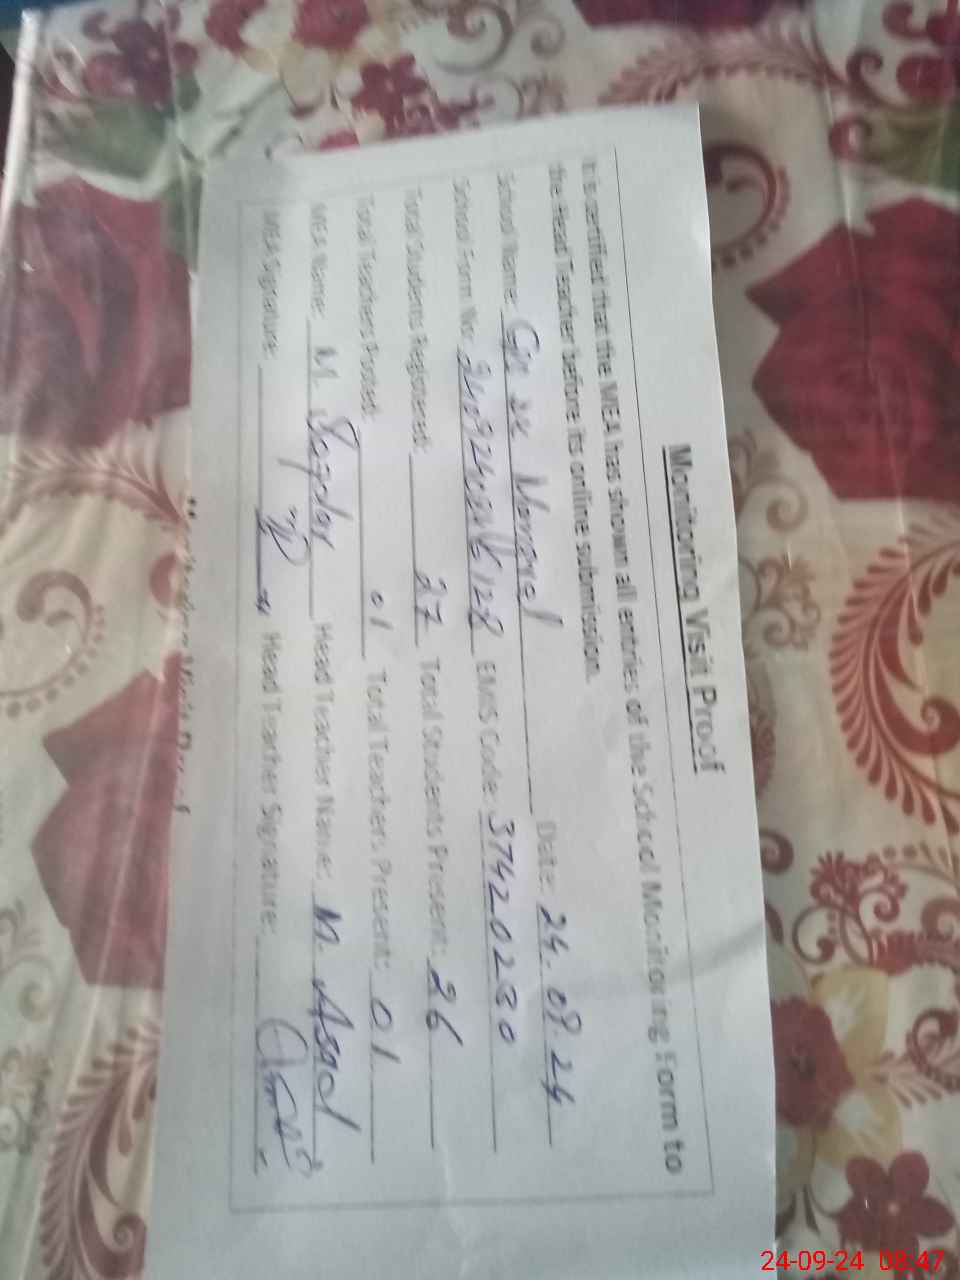 Monitoring Visit Proof
It is certified that the MEA has shown all entries of the School Monitoring Form to
the Head Teacher before its online submission.
School Name: Date: 24.09.24
School Form No: EMIS Code: 37420230
Total Students Registered: 27 Total Students Present: 26
Total Teachers Posted: 01 Total Teachers Present: 01
MEA Name: M. Safdar Head Teacher Name: M. Asad
MEA Signature: Head Teacher Signature:
24-09-24 08:47